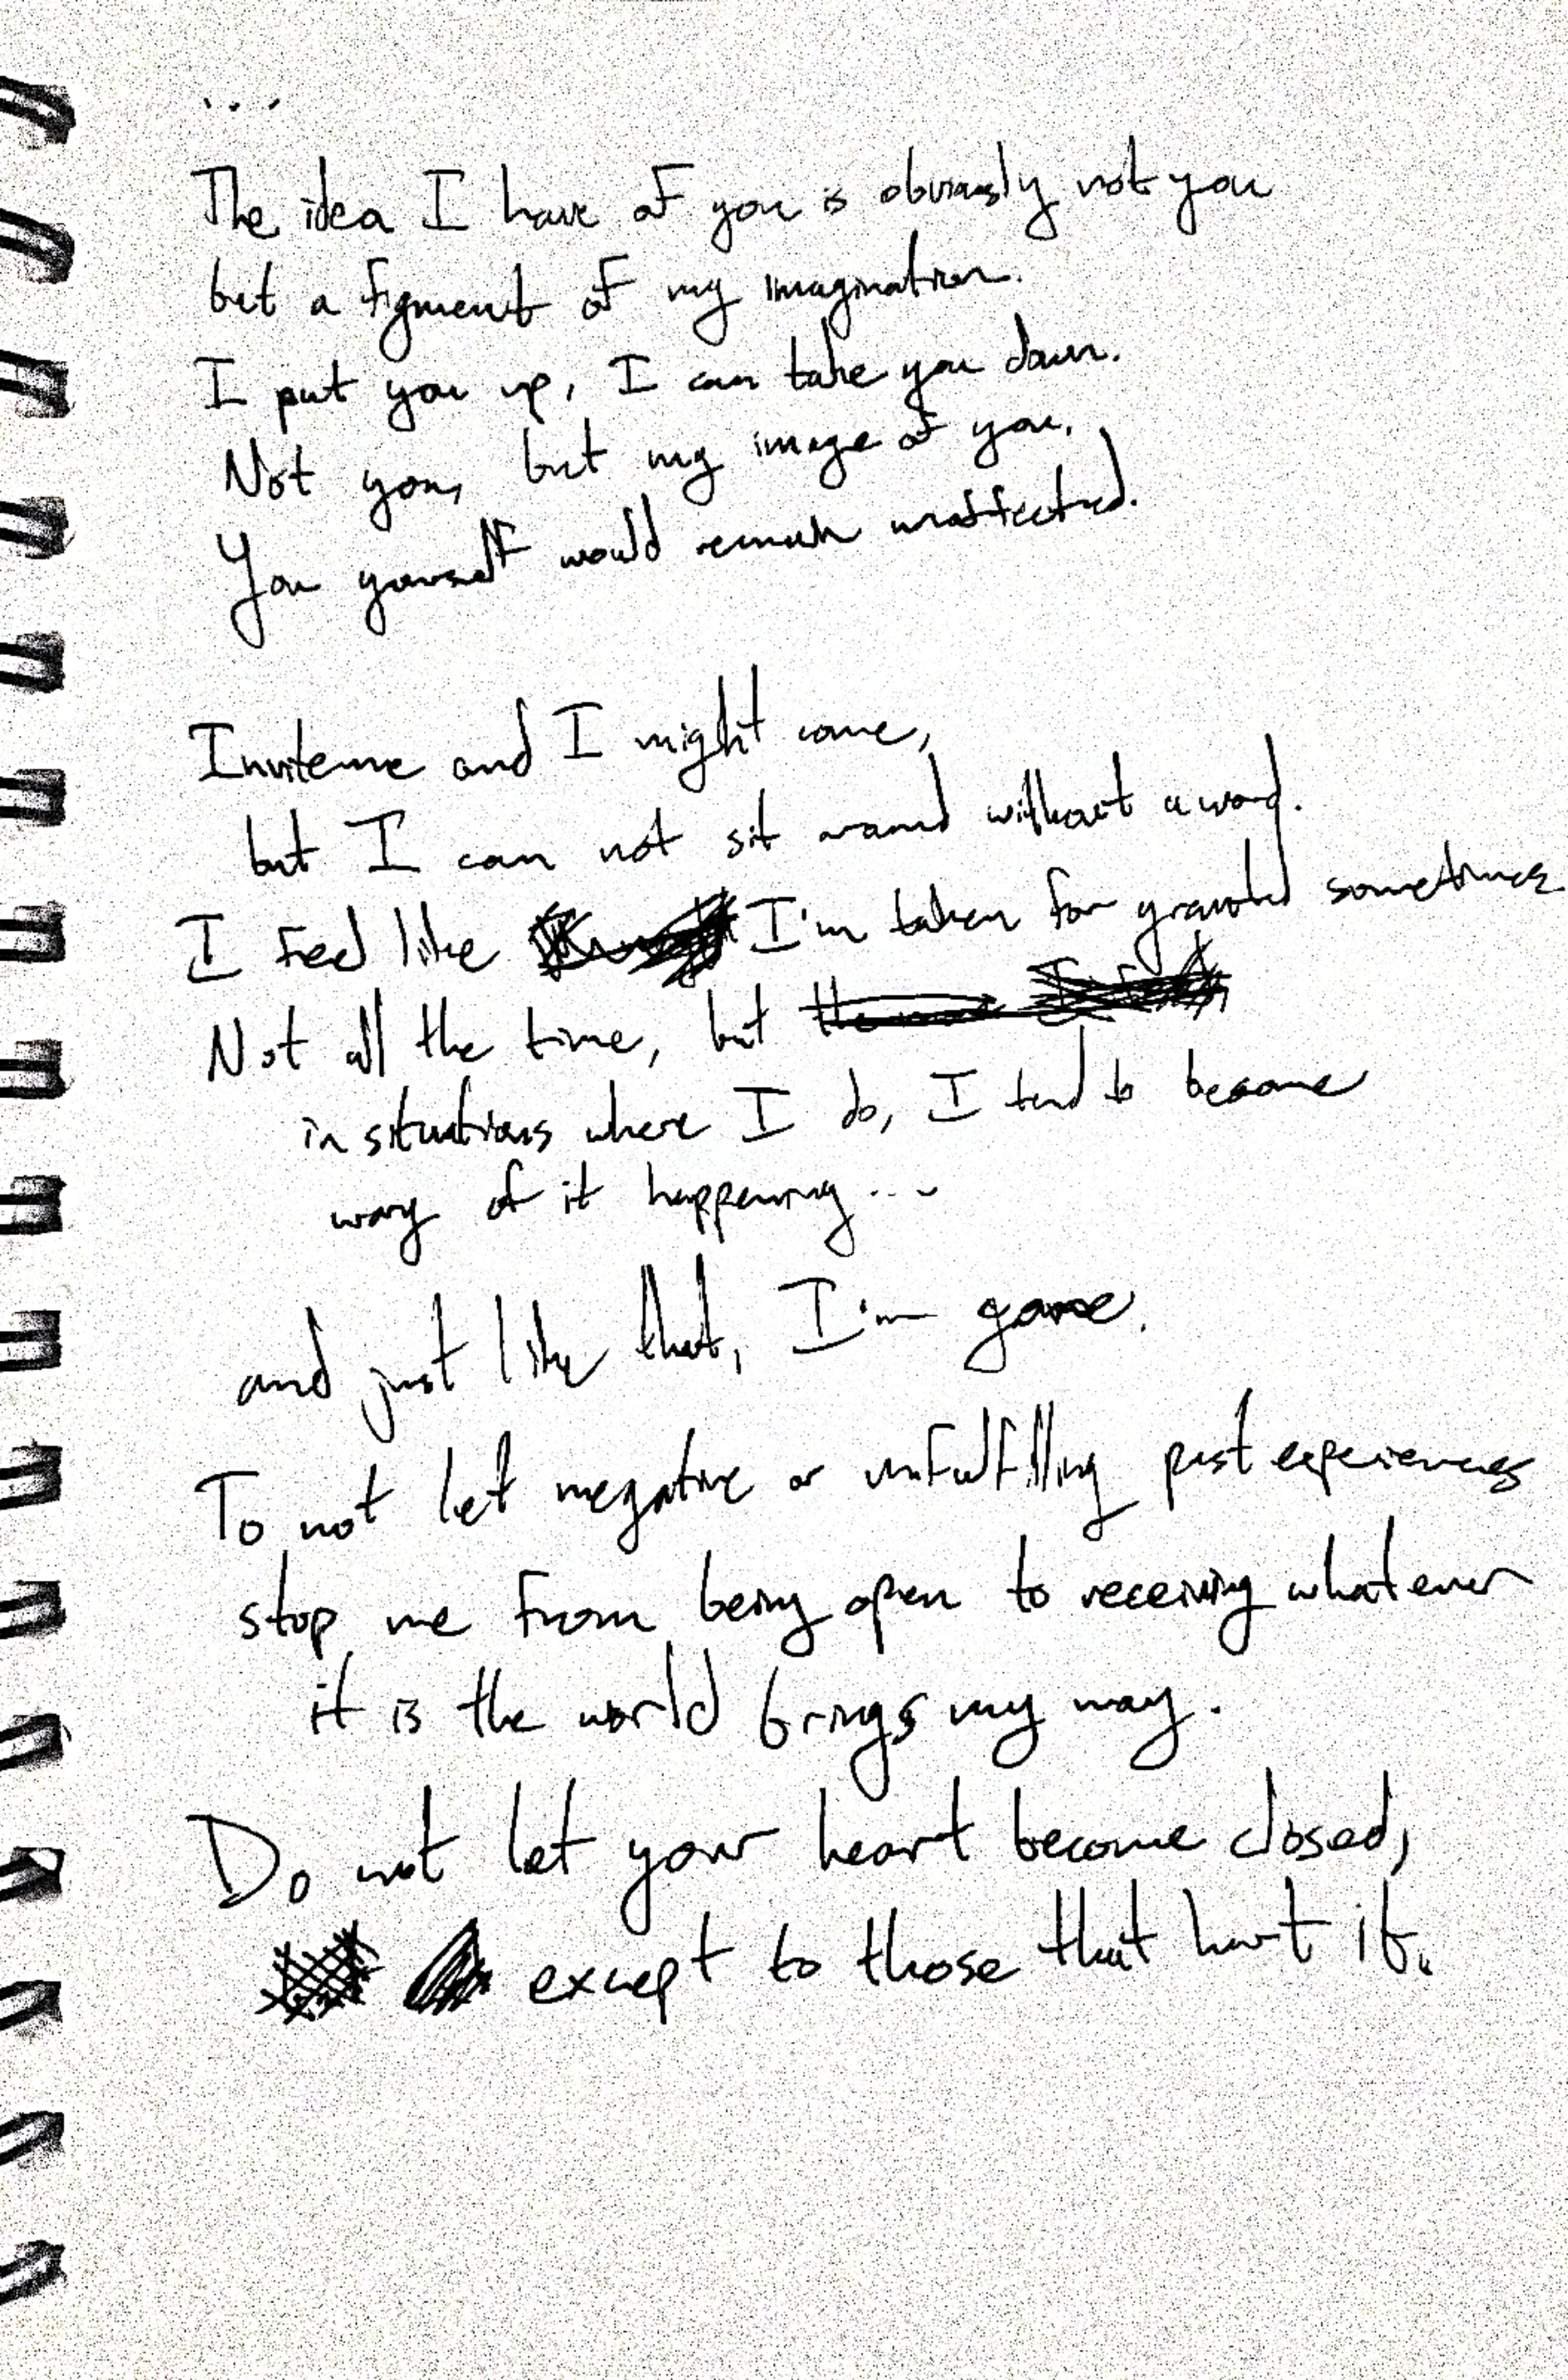 ...
The idea I have of you is obviously not you
but a figment of my imagination.
I put you up, I can take you down.
Not you, but my image of you.
You yourself would remain unaffected.
Invite me and I might come,
but I can not sit around without a word.
I feel like I'm taken for granted sometimes
Not all the time, but
in situations where I do, I tend to become
wary of it happening...
and just like that, I'm gone.
To not let negative or unfulfilling past experiences
stop me from being open to receiving whatever
it is the world brings my way.
Do not let your heart become closed,
except to those that hurt it.